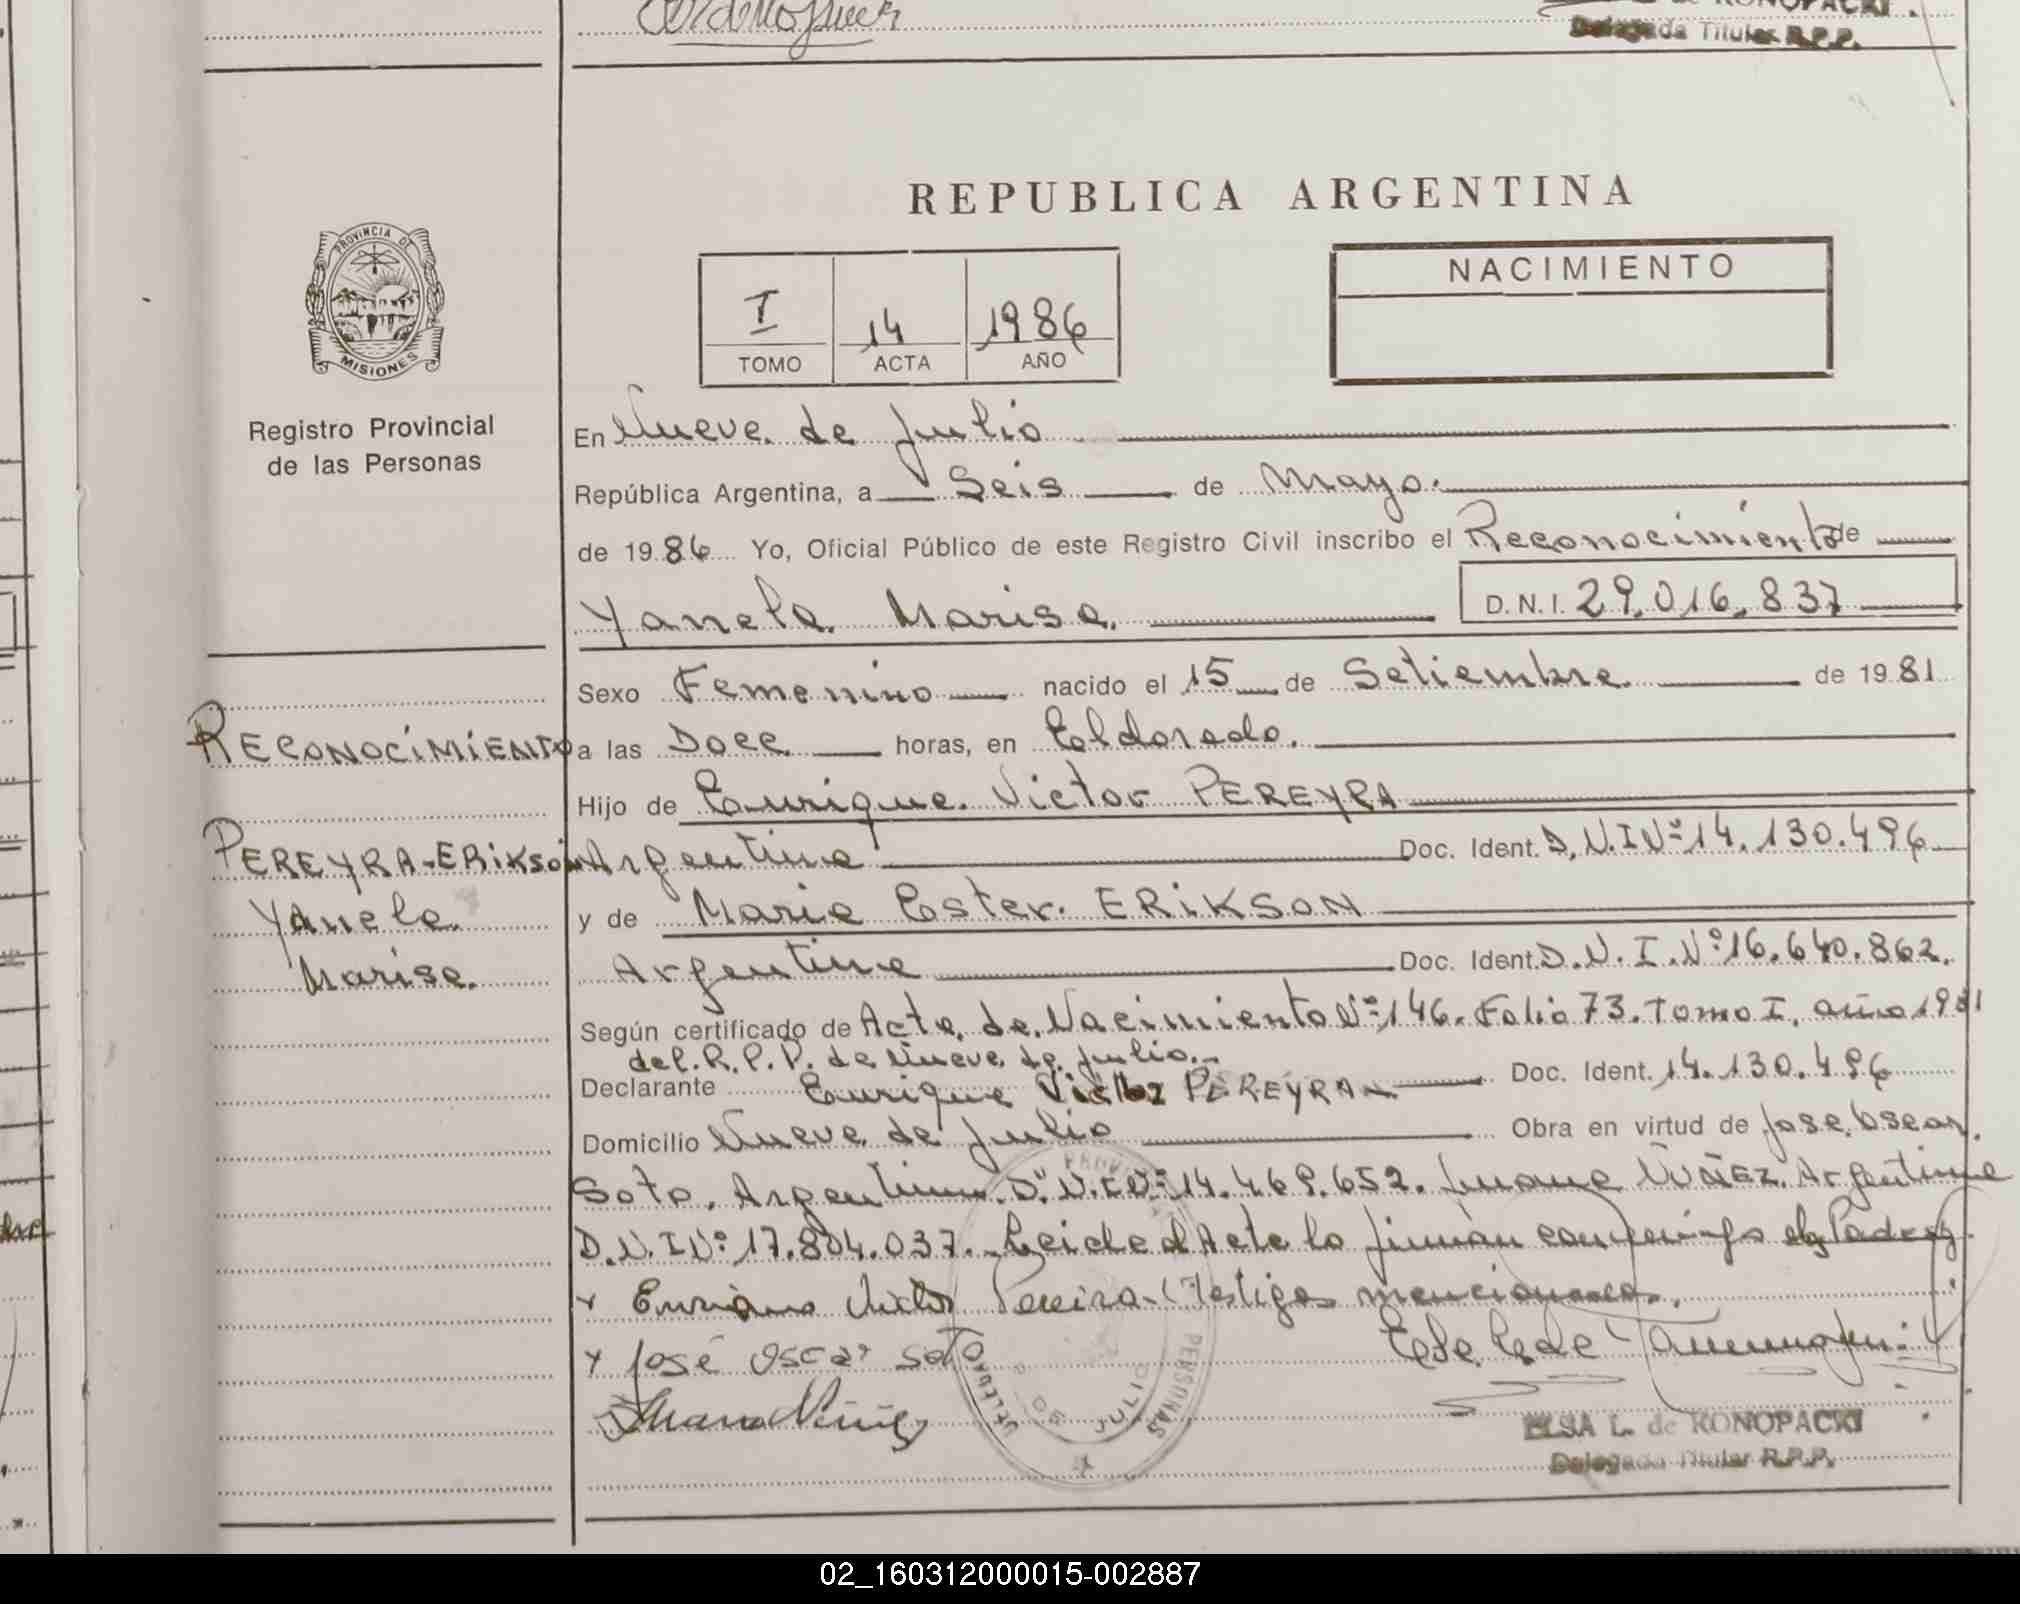 de KONOPACKI.
Delegada Titular R.P.P.
REPUBLICA ARGENTINA
PROVINCIA DE
MISIONES
Registro Provincial
de las Personas
I 14 1986
TOMO ACTA AÑO
NACIMIENTO
En Nueve de Julio
República Argentina, a Seis de Mayo.
de 1986 Yo, Oficial Público de este Registro Civil inscribo el Reconocimiento de
Yanela Marisa. D.N.I. 29.016.837
Sexo Femenino nacido el 15 de Setiembre de 1981
RECONOCIMIENTO
a las Doce horas, en Eldorado.
Hijo de Enrique Victor PEREYRA
PEREYRA-ERIKSON
Yanela
Marisa.
Argentino Doc. Ident. D.N.I Nº 14.130.496
y de Maria Ester ERIKSON
Argentina Doc. Ident. D.N.I.Nº 16.640.862.
Según certificado de Acta de Nacimiento Nº 146. Folio 73. Tomo I. año 1981
del R.P.P. de Nueve de Julio.
Declarante Enrique Victor PEREYRA Doc. Ident. 14.130.496
Domicilio Nueve de Julio Obra en virtud de Jose Oscar
Soto, Argentino D.N.I Nº 14.469.652. Juana NUÑEZ Argentina
D.N.I Nº 17.804.037. Leida el Acta la firman conmigo el Padre y
Testigos mencionados.
x Enrique Victor Pereira
x José Oscar Soto
Juana Núñez
ELSA L. de KONOPACKI
Delegada Titular R.P.P.
02_160312000015-002887